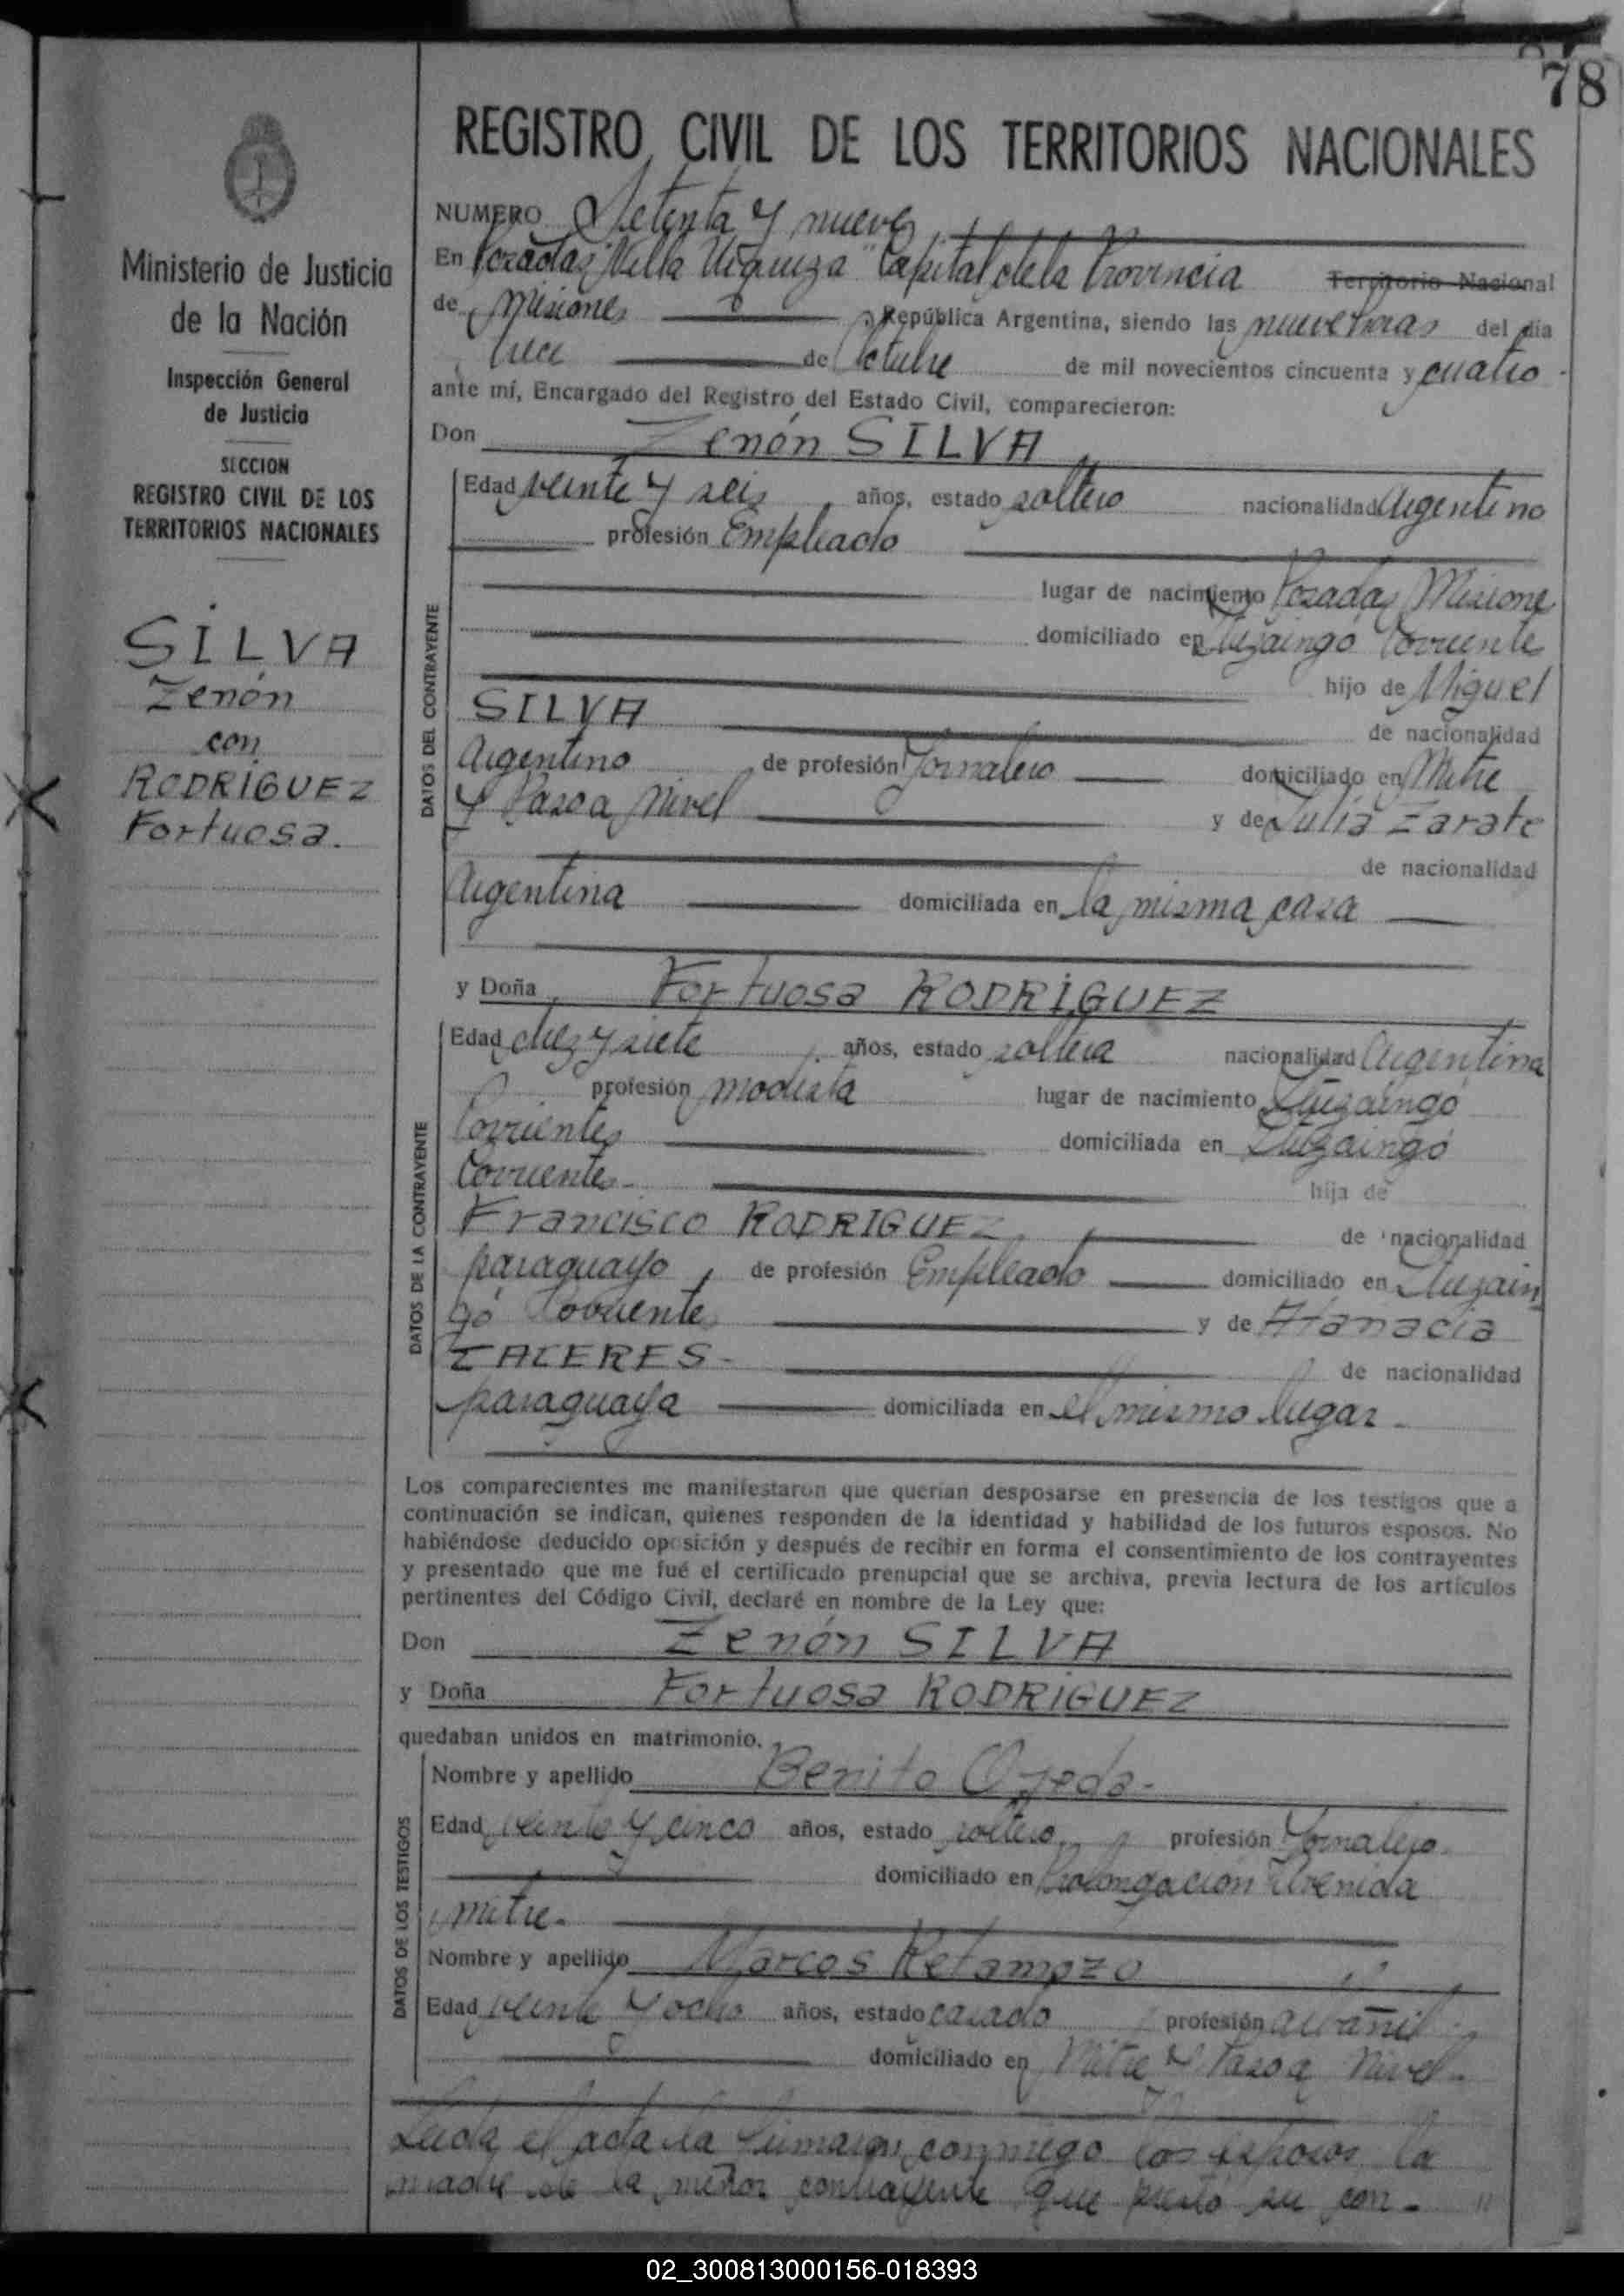 78
REGISTRO CIVIL DE LOS TERRITORIOS NACIONALES
Ministerio de Justicia
de la Nación
Inspección General
de Justicia
SECCION
REGISTRO CIVIL DE LOS
TERRITORIOS NACIONALES
SILVA
Zenón
con
RODRIGUEZ
Fortuosa.
NUMERO Setenta y nueve
En Posadas "Villa Urquiza" Capital de la Provincia Territorio Nacional
de Misiones República Argentina, siendo las nueve horas del día
de Octubre de mil novecientos cincuenta y cuatro
ante mí, Encargado del Registro del Estado Civil, comparecieron:
Don Zenón SILVA
DATOS DEL CONTRAYENTE
Edad veinte y seis años, estado soltero nacionalidad Argentino
profesión Empleado
lugar de nacimiento Posadas Misiones
domiciliado en Ituzaingó Corrientes
hijo de Miguel
SILVA de nacionalidad
Argentino de profesión Jornalero domiciliado en Mitre
y Paso a Nivel y de Julia Zarate
de nacionalidad
Argentina domiciliada en la misma casa
y Doña Fortuosa RODRIGUEZ
DATOS DE LA CONTRAYENTE
Edad diez y siete años, estado soltera nacionalidad Argentina
profesión modista lugar de nacimiento Ituzaingó
Corrientes domiciliada en Ituzaingó
Corrientes- hija de
Francisco RODRIGUEZ de nacionalidad
paraguayo, de profesión Empleado domiciliado en Ituzain
gó Corrientes y de Atanacia
de nacionalidad
paraguaya domiciliada en el mismo lugar-
Los comparecientes me manifestaron que querían desposarse en presencia de los testigos que a
continuación se indican, quienes responden de la identidad y habilidad de los futuros esposos. No
habiéndose deducido oposición y después de recibir en forma el consentimiento de los contrayentes
y presentado que me fué el certificado prenupcial que se archiva, previa lectura de los artículos
pertinentes del Código Civil, declaré en nombre de la Ley que:
Don Zenón SILVA
y Doña Fortuosa RODRIGUEZ
quedaban unidos en matrimonio.
DATOS DE LOS TESTIGOS
Nombre y apellido Benito Ojeda-
Edad veinte y cinco años, estado soltero profesión Jornalero
domiciliado en Prolongación Avenida
mitre-
Nombre y apellido Marcos Retamozo
Edad veinte y ocho años, estado casado profesión albañil
domiciliado en Mitre y Paso a Nivel-
Leída el acta la firmaron conmigo los esposos la
madre de la menor contrayente que prestó su con-
02_300813000156-018393